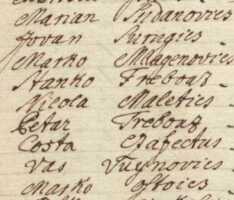 Marian Sudanovics
Jovan Surugics
Marko Mlagenovics
Stanko Treboaz
Nicola Maletics
Petar Treboaz
Costa Czafectus
Vas Vuynovics
Marko Ostoics